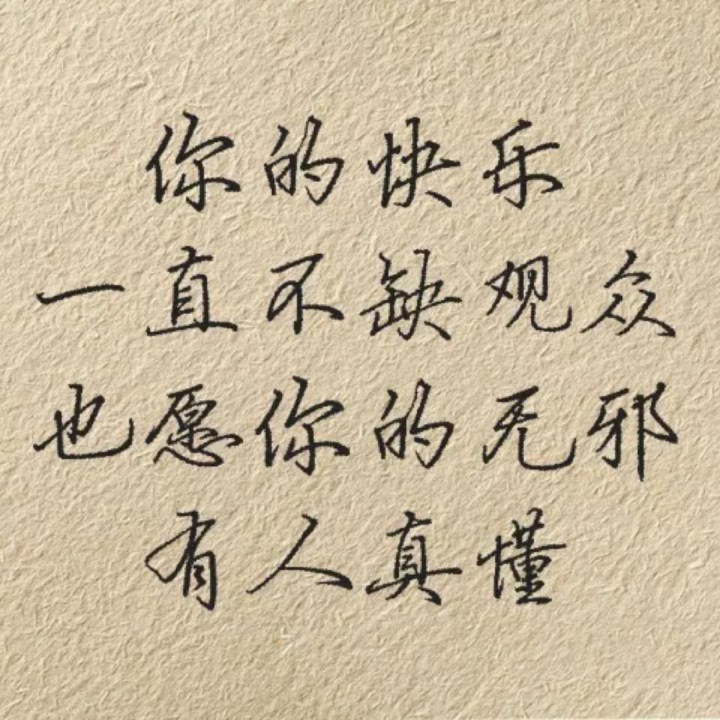 你的快乐
一直不缺观众
也愿你的无邪
有人真懂